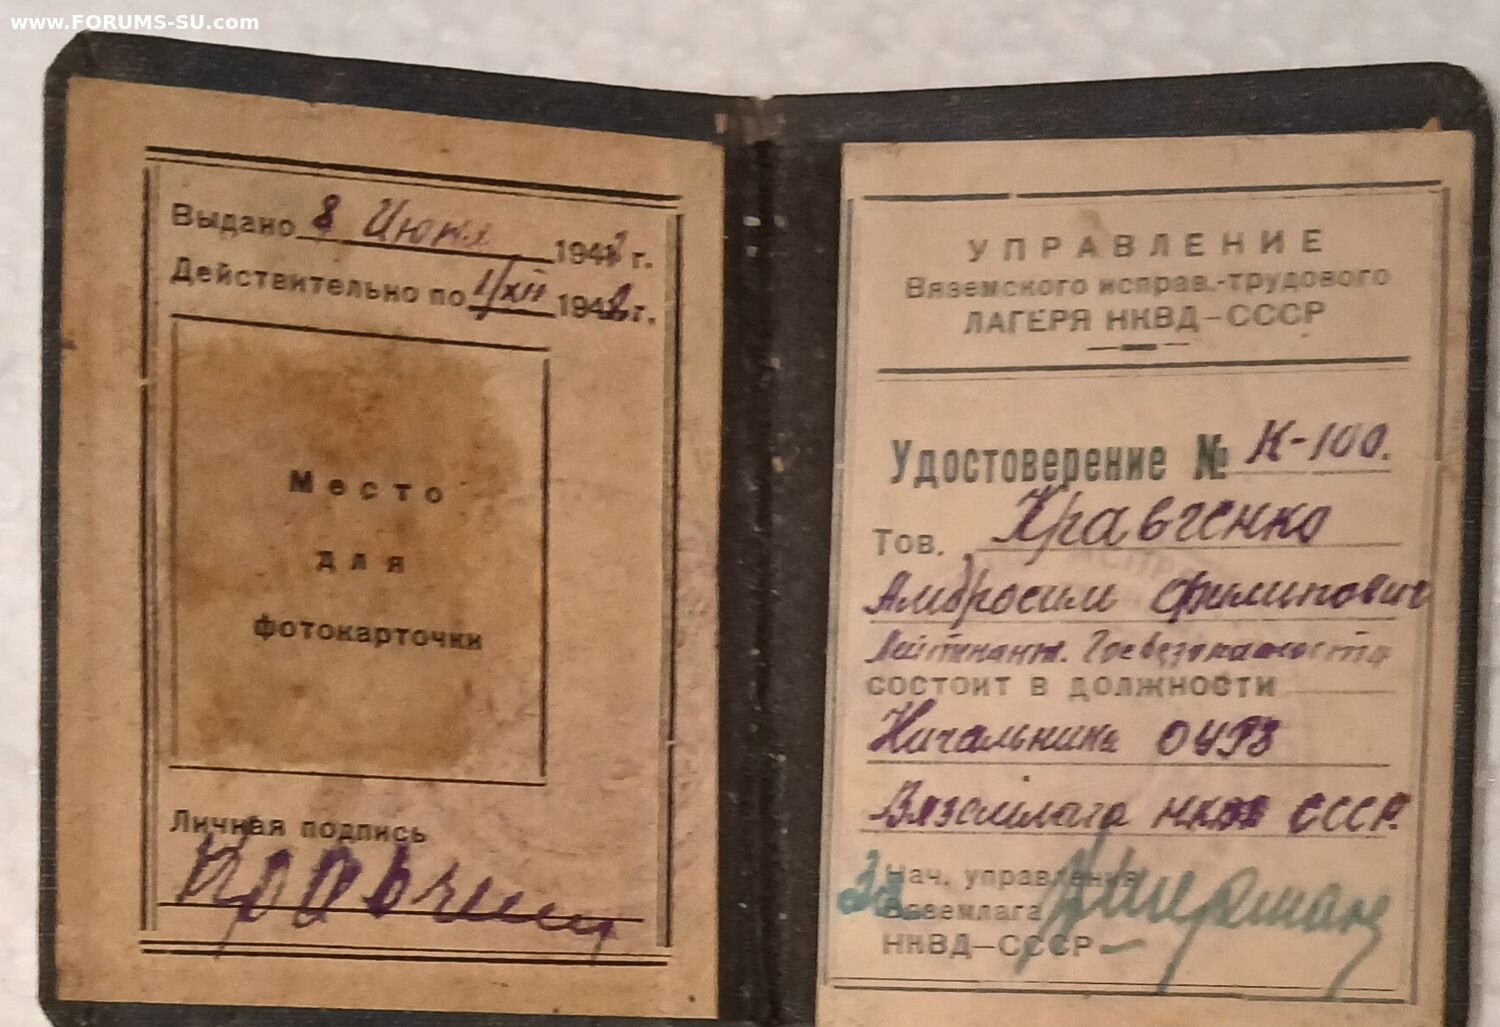 www.FORUMS-SU.com
Выдано 8 Июня 1942 г.
Действительно по 1/XII 1942 г.
Место
для
фотокарточки
Личная подпись
УПРАВЛЕНИЕ
Вяземского исправ.-трудового
ЛАГЕРЯ НКВД–СССР
Удостоверение № К-100.
Тов. Кравченко
Амбросим Филипович
Лейтенант. Госбезопасности
состоит в должности
Начальника ОУРЗ
Вяземлага НКВД СССР.
За Нач. управления
Вяземлага
НКВД–СССР